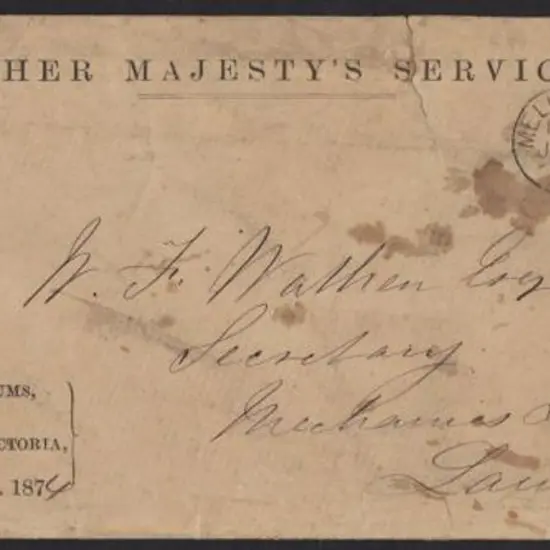 HER MAJESTY'S SERVIC
MEL
W. F. Wathen Esq
Secretary
Mechanics
Lau
UMS,
CTORIA,
. 1874